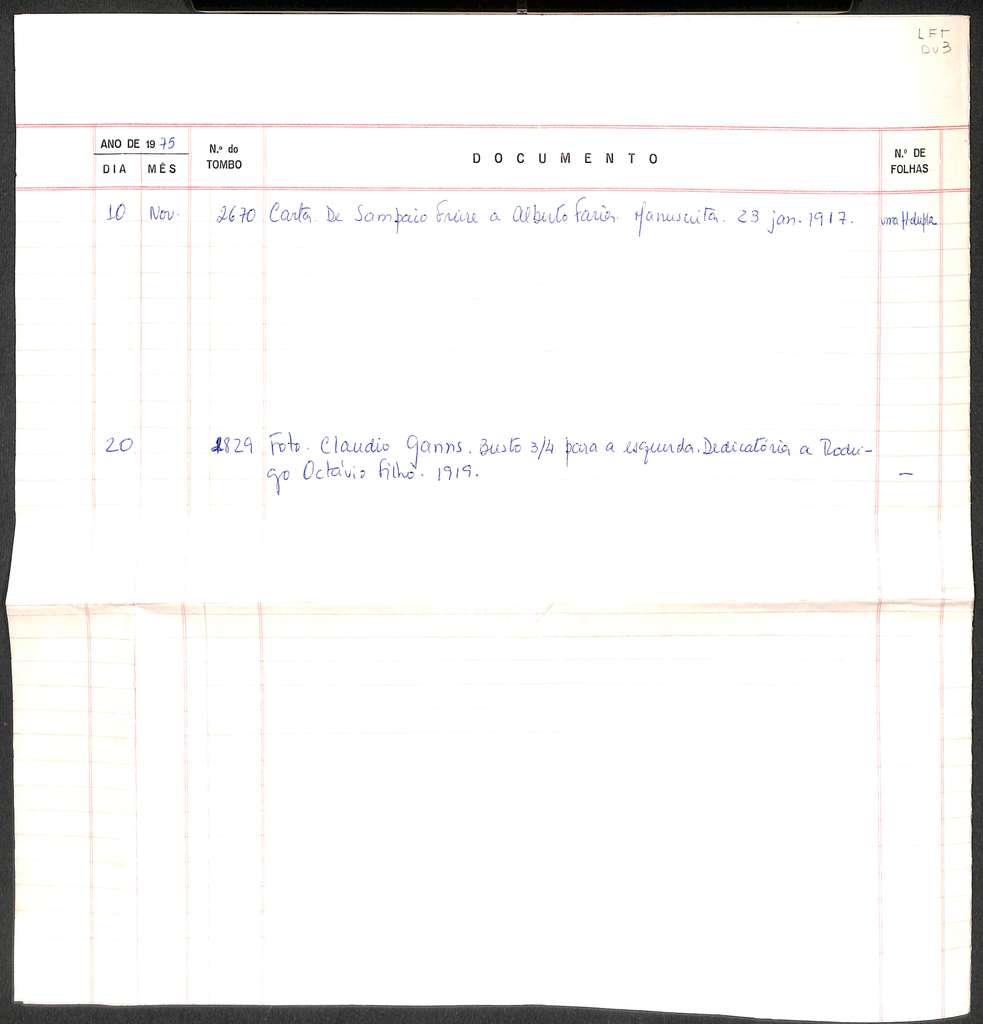 LFT
Du3
ANO DE 1975
N.º do
TOMBO
DOCUMENTO
N.º DE
FOLHAS
DIA MÊS
10 Nov. 2670 Carta. De Sampaio Freire a Alberto Faria. Manuscrita. 23 jan. 1917. uma fl dupla
20 1829 Foto. Claudio Ganns. Busto 3/4 para a esquerda. Dedicatória a Rodri-
go Octávio Filho. 1919. —